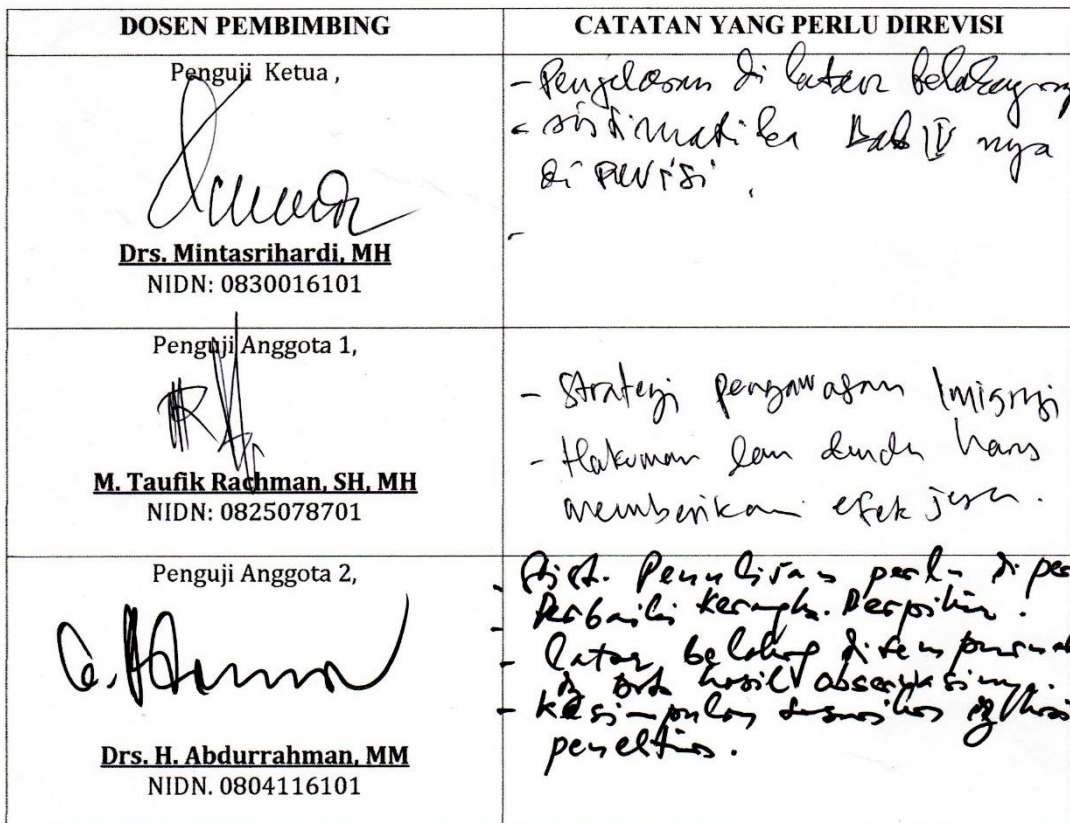 DOSEN PEMBIMBING
CATATAN YANG PERLU DIREVISI
Penguji Ketua ,
Drs. Mintasrihardi, MH
NIDN: 0830016101
- Penjelasan di latar belakang
- sistimatika Bab IV nya
di revisi .
-
Penguji Anggota 1,
M. Taufik Rachman, SH, MH
NIDN: 0825078701
- Strategi pengawasan Imigrasi
- Hukuman dan denda harus
memberikan efek jera .
Penguji Anggota 2,
Drs. H. Abdurrahman, MM
NIDN. 0804116101
- Sist. Penulisan perlu di per
Perbaiki Kerangka Berpikir .
- Latar belakang disempurnak
hasil observasinya .
- Kesimpulan sesuaikan dg hasi
penelitian .